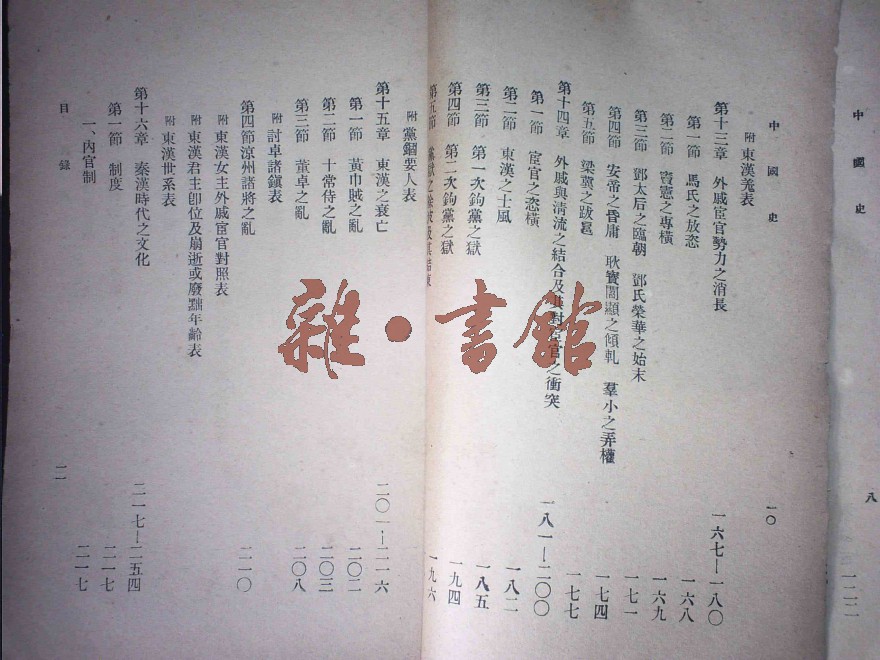 中國史
一〇
附 東漢羌表
第十三章 外戚宦官勢力之消長 一六七—一八〇
第一節 馬氏之放恣 一六八
第二節 竇憲之專橫 一六九
第三節 鄧太后之臨朝 鄧氏榮華之始末 一七一
第四節 安帝之昏庸 耿寶閻顯之傾軋 羣小之弄權 一七四
第五節 梁冀之跋扈 一七七
第十四章 外戚與清流之結合及其對宦官之衝突 一八一—二〇〇
第一節 宦官之恣橫
第二節 東漢之士風 一八二
第三節 第一次鉤黨之獄 一八五
第四節 第二次鉤黨之獄 一九四
第五節 黨獄之餘波及其結束 一九六
附 黨錮要人表
第十五章 東漢之衰亡 二〇一—二一六
第一節 黃巾賊之亂 二〇二
第二節 十常侍之亂 二〇三
第三節 董卓之亂 二〇八
附 討卓諸鎭表
第四節 涼州諸將之亂 二一〇
附 東漢女主外戚宦官對照表
附 東漢君主卽位及崩逝或廢黜年齡表
附 東漢世系表
第十六章 秦漢時代之文化 二一七—二五四
第一節 制度 二一七
一、內官制 二一七
目錄
一一
中國史
八
雜·書館